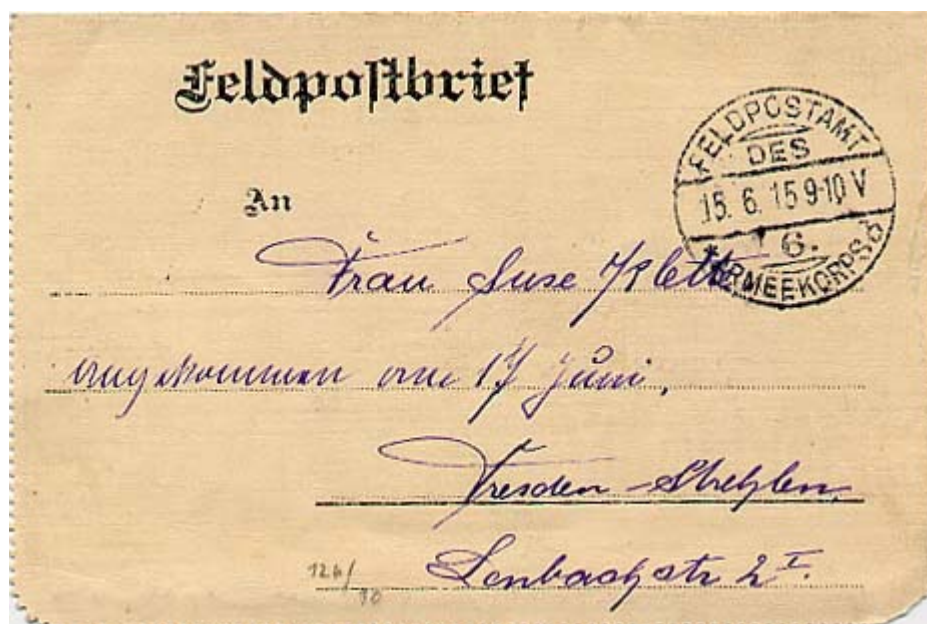 Feldpostbrief
FELDPOSTAMT
DES
15. 6. 15 9-10 V
6.
ARMEEKORPS
An
Frau Suse Klette
angekommen am 17 Juni,
Dresden-Strehlen,
Lenbachstr 2 I.